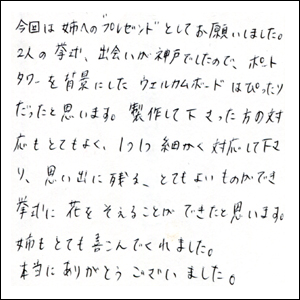 今回は姉への"プレゼント"としてお願いしました。
2人の挙式、出会いが神戸でしたので、ポート
タワーを背景にしたウェルカムボードはぴったり
だったと思います。製作して下さった方の対
応もとてもよく、1つ1つ細かく対応して下さ
り、思い出に残る、とてもよいものができ
挙式に花をそえることができたと思います。
姉もとても喜こんでくれました。
本当にありがとうございました。